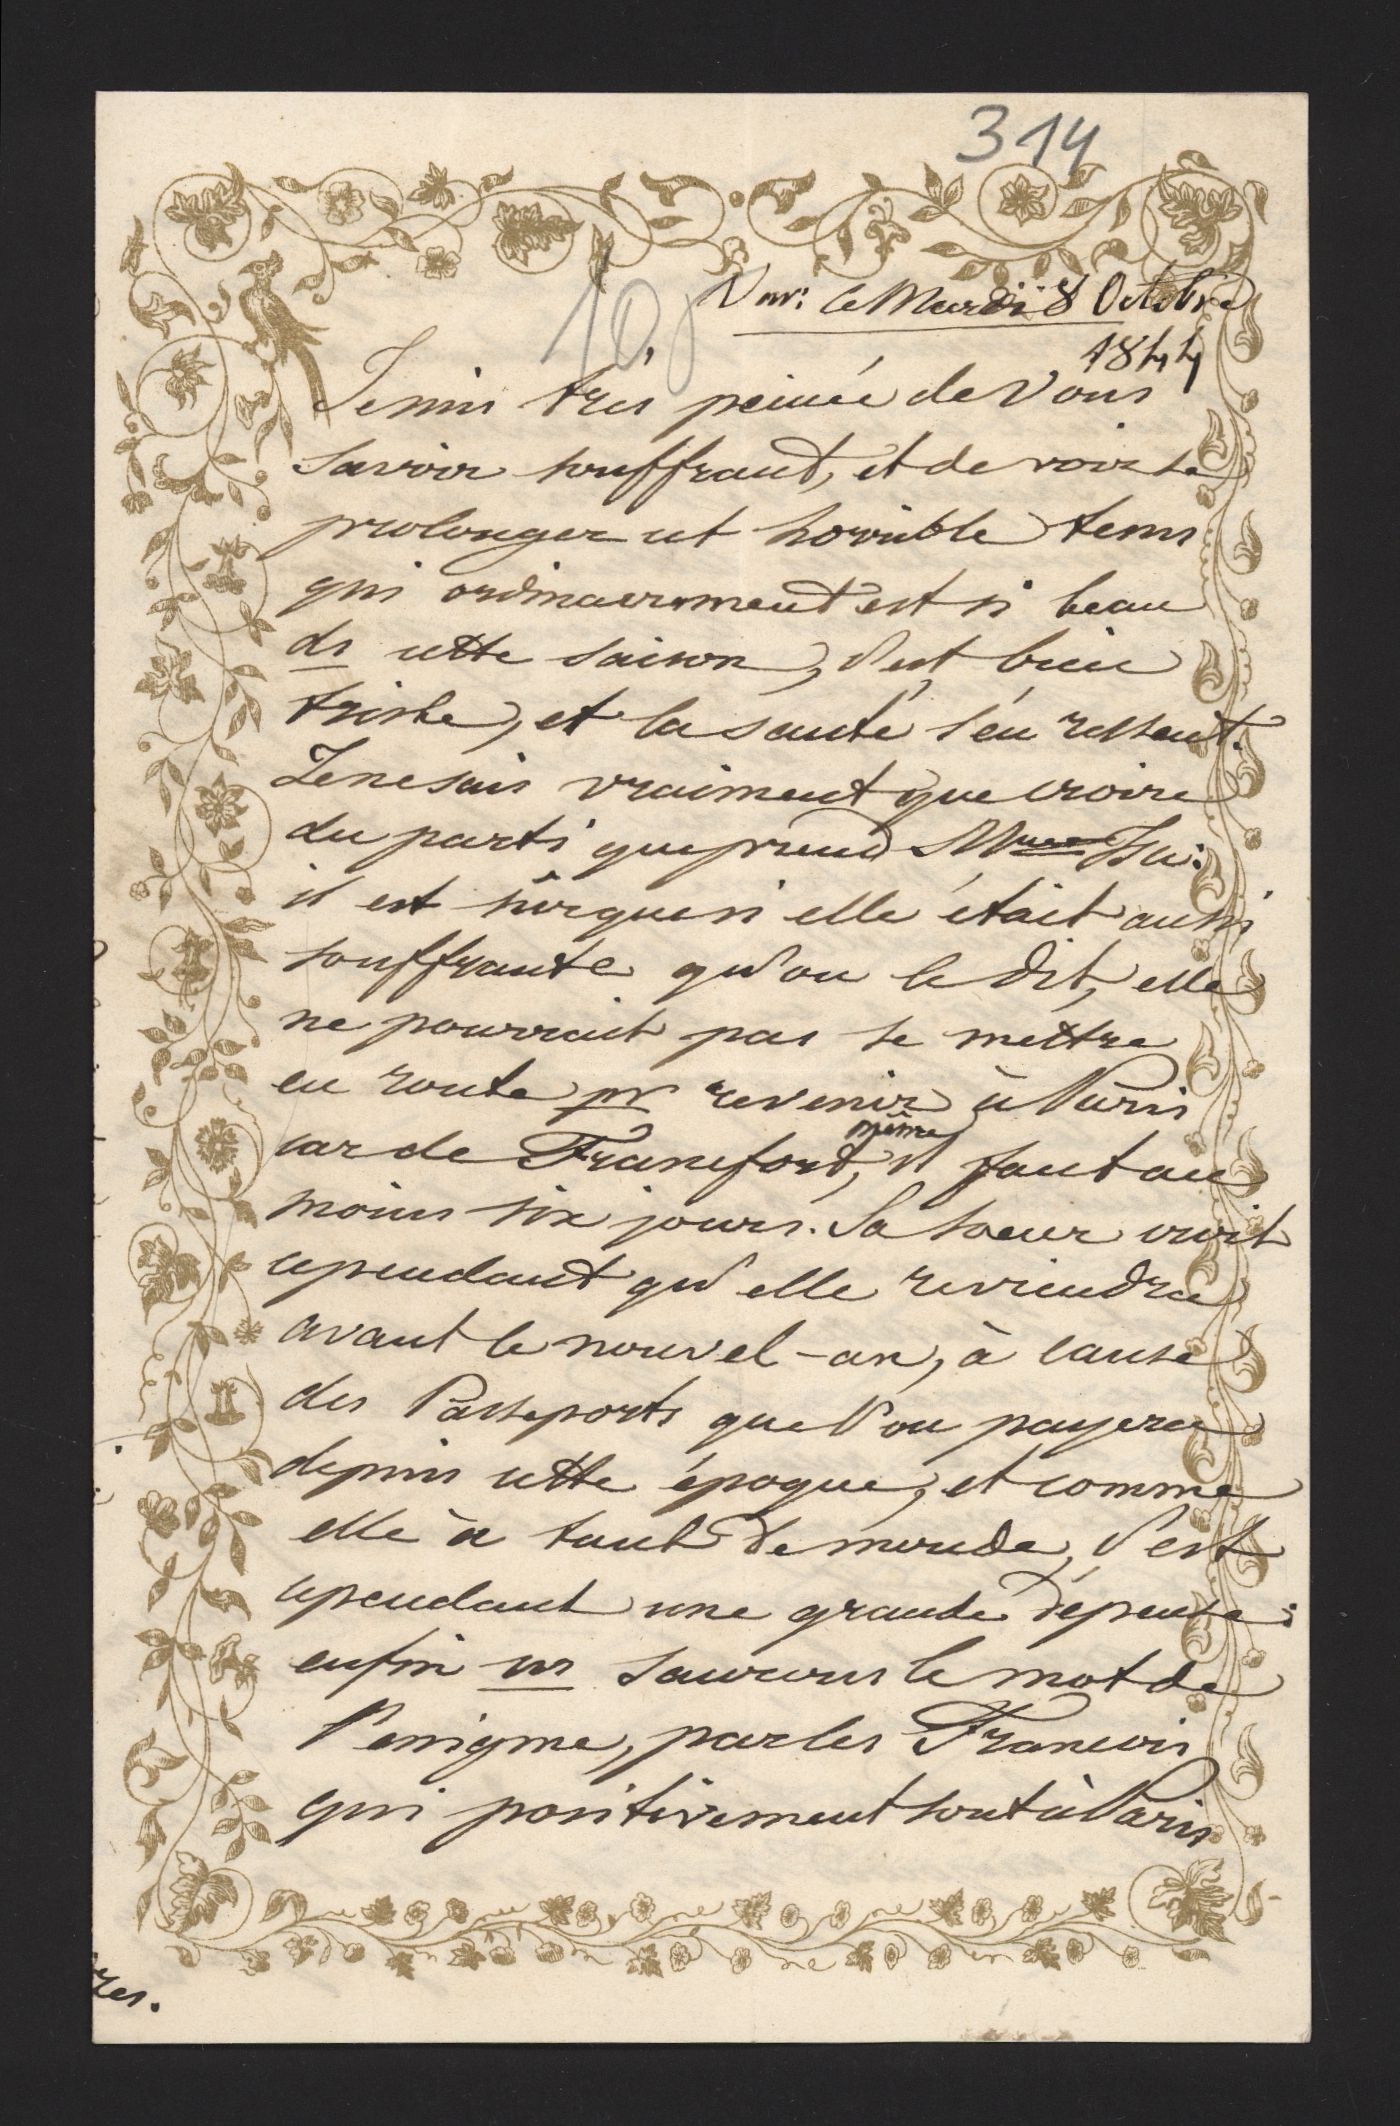 314
10.
Var: le Mardi 8 Octobre
1844
Je suis très peinée de vous
savoir souffrant, et de voir se
prolonger cet horrible tems
qui ordinairement est si beau
ds cette saison, c'est bien
triste, et la santé s'en ressent.
Je ne sais vraiment que croire
du parti que prend Mme
il est sûr que si elle était aussi
souffrante qu'on le dit, elle
ne pourrait pas se mettre
en route pr revenir à Paris
car de Francfort, même il faut au
moins six jours. Sa soeur écrit
cependant qu'elle reviendra
avant le nouvel-an, à cause
des Passeports que l'on payera
depuis cette époque, et comme
elle à tant de monde, c'est
cependant une grande dépense:
enfin ns saurons le mot de
l'enigme, par les Francois
qui positivement sont à Paris
res.